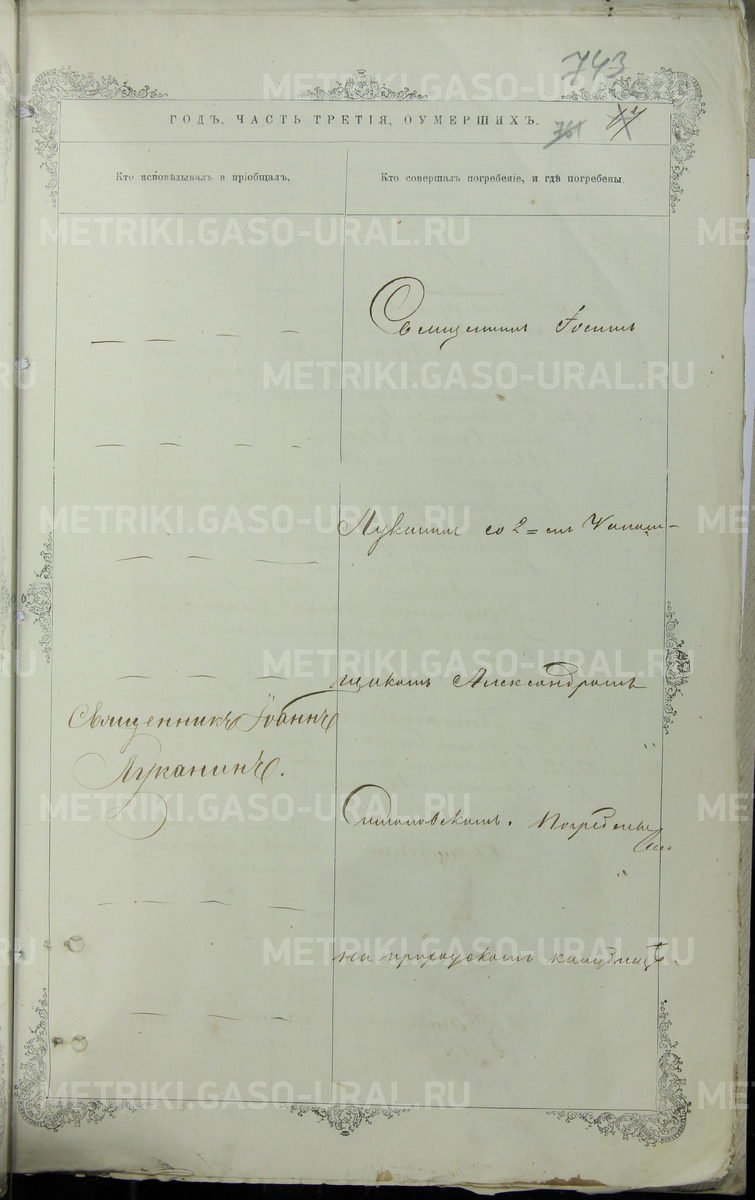 743
ГОДЪ. ЧАСТЬ ТРЕТІЯ, ОУМЕРШИХЪ.
761
Кто исповѣдывалъ и пріобщалъ.
Кто совершалъ погребеніе, и гдѣ погребены
Священникъ
Луканинъ со 2=мъ
щикомъ Александромъ
Священникъ Іоаннъ
Луканинъ.
Погребены
на приходскомъ кладбищѣ.
METRIKI.GASO-URAL.RU